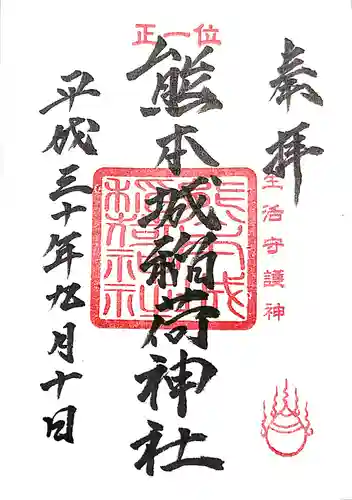 奉拝
生活守護神
正一位
熊本城稲荷神社
熊本城稲荷神社
平成三十年九月十日